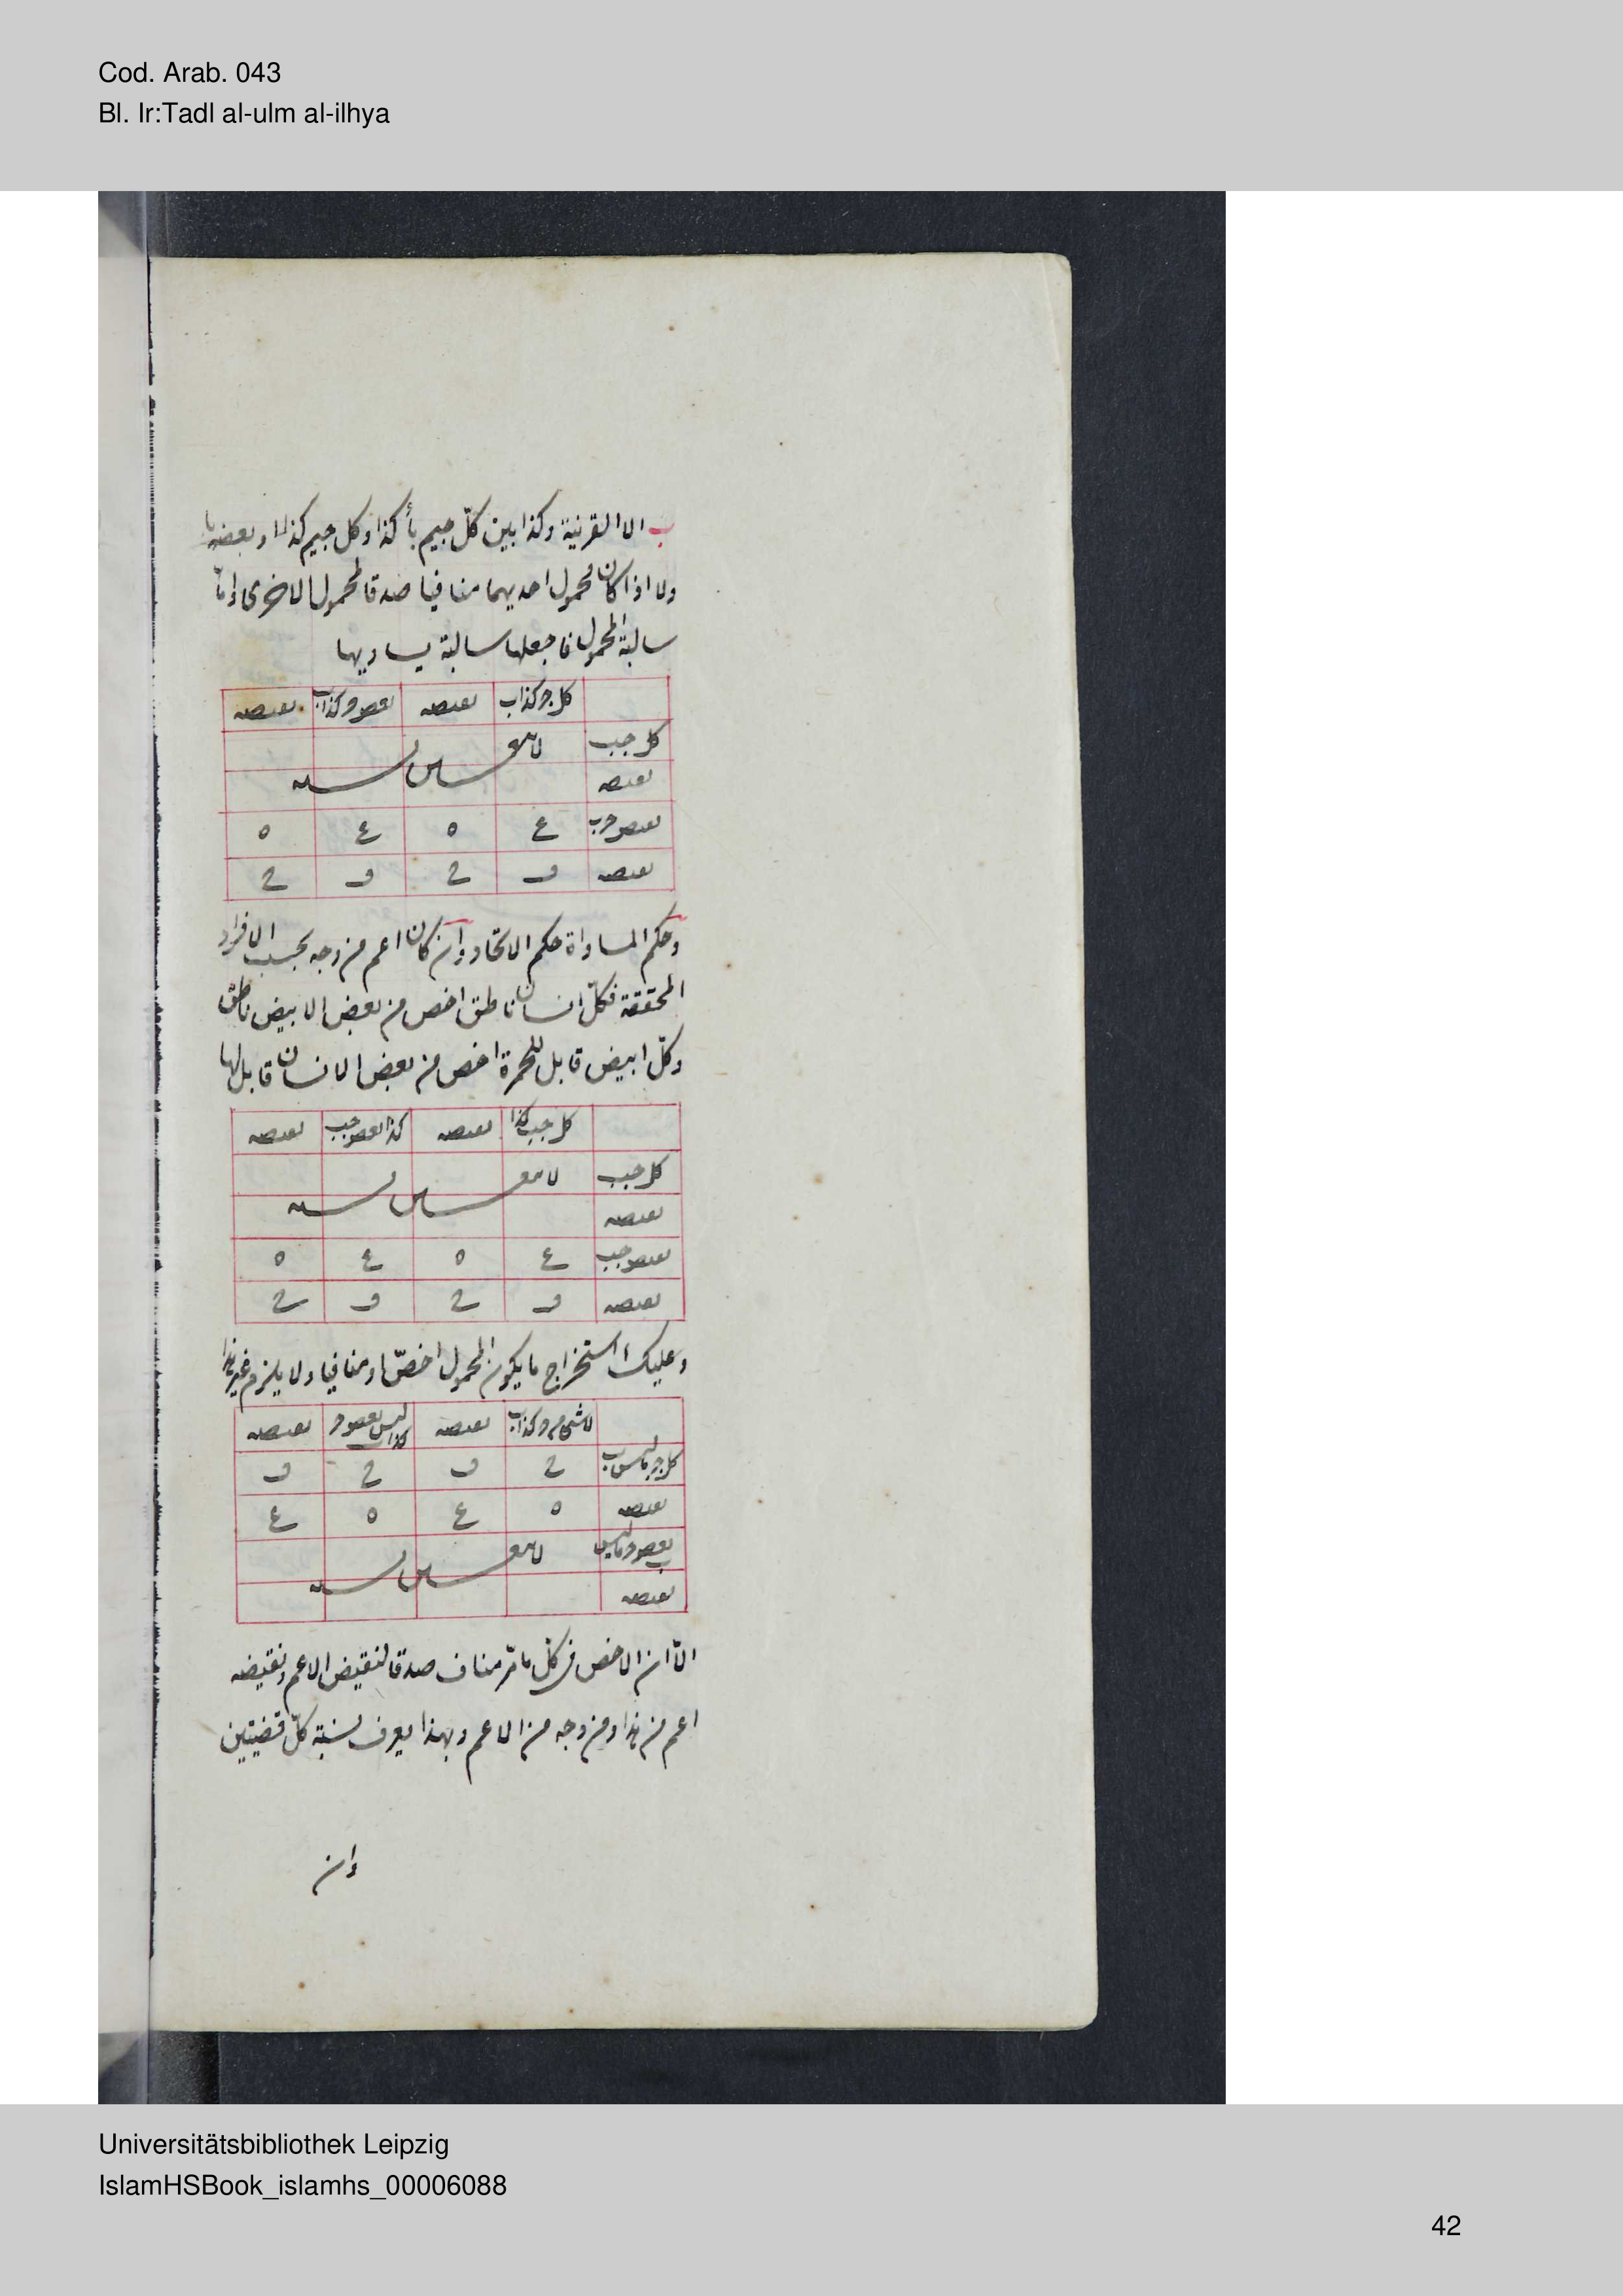 Cod. Arab. 043
Bl. Ir:Tadl al-ulm al-ilhya
ب الا القرينة وكذا بين كلّ جيم بأ كذا وكل جيم كذا
ولا اذا كان محمول احديهما منافيا صدقا لمحمول الاخرى وامّا
سالبة المحمول فاجعلها سالبة يساويها
كل ج كذا ب نقيضه بعض ج كذا ب نقيضه
كل ج ب
نقيضه
بعض ج ب ع ه ع ه
نقيضه
وحكم المساواة حكم الاتحاد وان كان اعم من وجه بحسب الافراد
المحققة فكلّ انسان ناطق اخص من بعض الابيض ناطق
وكلّ ابيض قابل للحمرة اخص من بعض الانسان قابل لها
كل ج ب كذا نقيضه كذا بعض ج ب نقيضه
كل ج ب
نقيضه
بعض ج ب ع ه ع ه
نقيضه
وعليك استخراج ما يكون المحمول اخصّ او منافيا ولا يلزم غير هذا
لا شئ من ج كذا ب نقيضه ليس بعض ج كذا ب نقيضه
كل ج ما ليس ب
نقيضه ه ع ه ع
بعض ج ما ليس ب
نقيضه
الّا ان الاخص في كلّ ما مرّ مناف صدقا لنقيض الاعم ونقيضه
اعم من هذا ومن وجه من الاعم وبهذا يعرف نسبة كلّ قضيتين
وان
Universitätsbibliothek Leipzig
IslamHSBook_islamhs_00006088
42